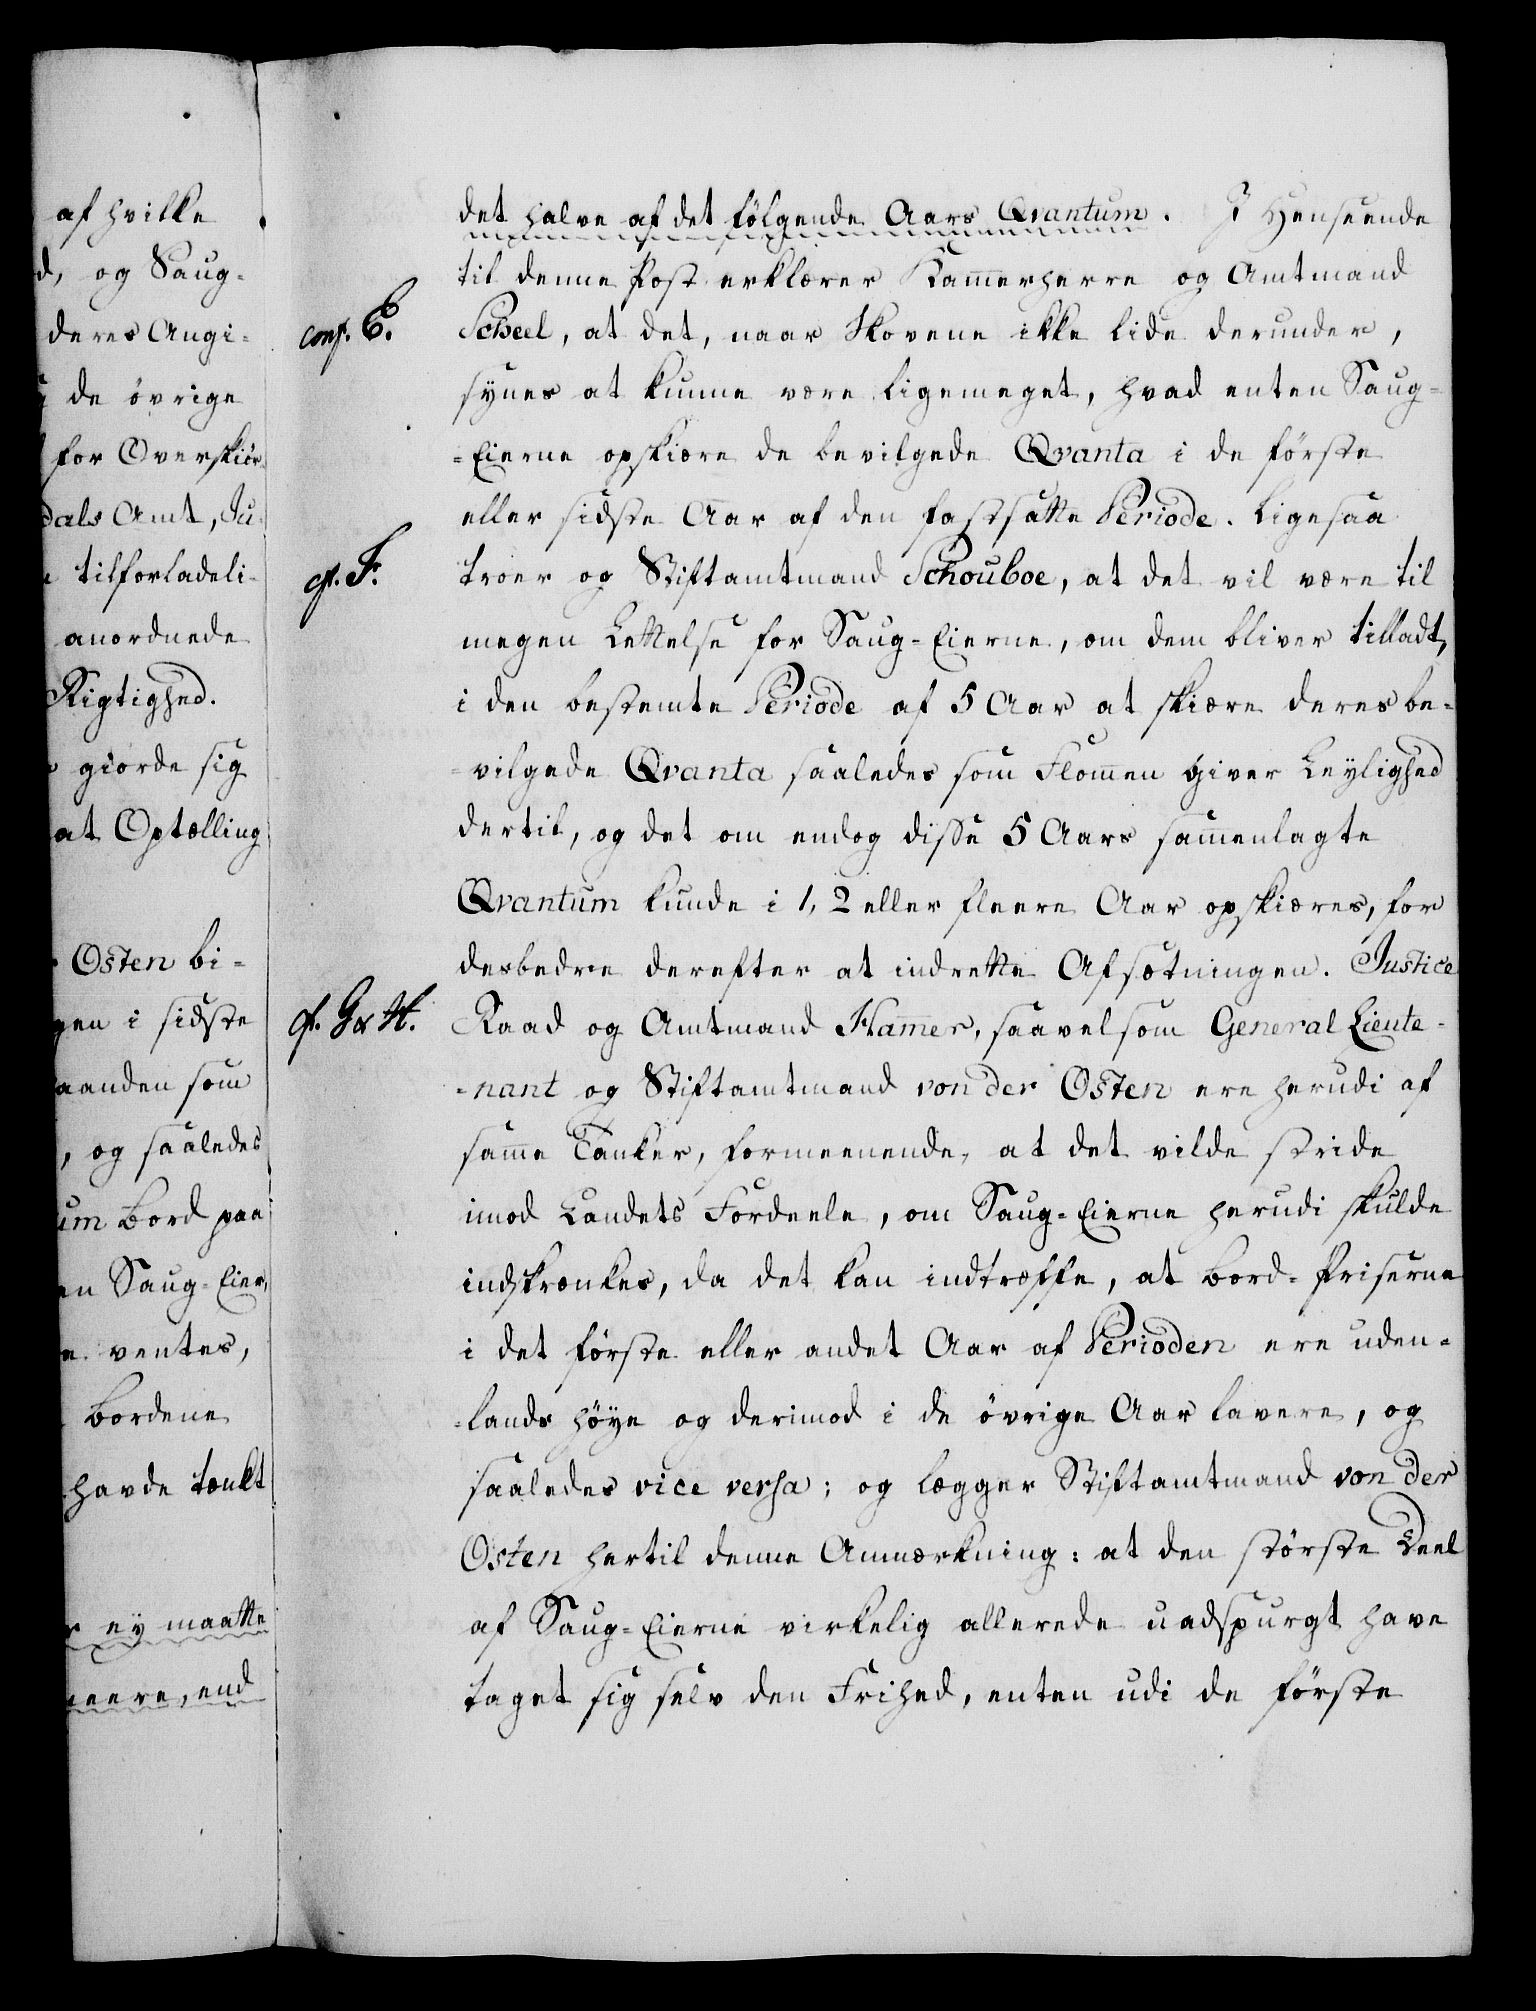 af hvilke
d, og Saug-
deres Angi-
de øvrige
for Overskiør-
dals Amt, Ju-
tilforladeli-
anordnede
Rigtighed.
giorde sig
at Optælling
Osten bi-
gen i sidste
aanden som
, og saaledes
um Bord paa
en Saug-Eier,
e ventes,
Bordene
havde tænkt
ey maatte
meere, end
det halve af det følgende Aars Qvantum. I Henseende
til denne Post erklærer Kam̅erherre og Amtmand
conf. E.
Scheel, at det, naar Skovene ikke lide derunder,
synes at kunne være ligemeget, hvad enten Saug-
-Eierne opskiære de bevilgede Qvanta i de første
eller sidste Aar af den fastsatte Periode. Ligesaa
cf. F.
troer og Stiftamtmand Schouboe, at det vil være til
megen Lettelse for Saug-Eierne, om dem bliver tilladt,
i den bestemte Periode af 5 Aar at skiære deres be-
-vilgede Qvanta saaledes som Flom̅en giver Leylighed
dertil, og det om endog disse 5 Aars sam̅enlagte
Qvantum kunde i 1, 2 eller fleere Aar opskiæres, for
desbedre derefter at indrette Afsætningen. Justice
cf. G & H.
Raad og Amtmand Ham̅er, saavelsom General Lieute-
-nant og Stiftamtmand von der Osten ere herudi af
sam̅e Tanker, formeenende, at det vilde stride
imod Landets Fordeele, om Saug-Eierne herudi skulde
indskrænkes, da det kan indtræffe, at Bord-Priserne
i det første eller andet Aar af Perioden ere uden-
-lands høye og derimod i de øvrige Aar lavere, og
saaledes vice versa; og lægger Stiftamtmand von der
Osten hertil denne Anmærkning: at den største Deel
af Saug-Eierne virkelig allerede uadspurgt have
taget sig selv den Frihed, enten udi de første